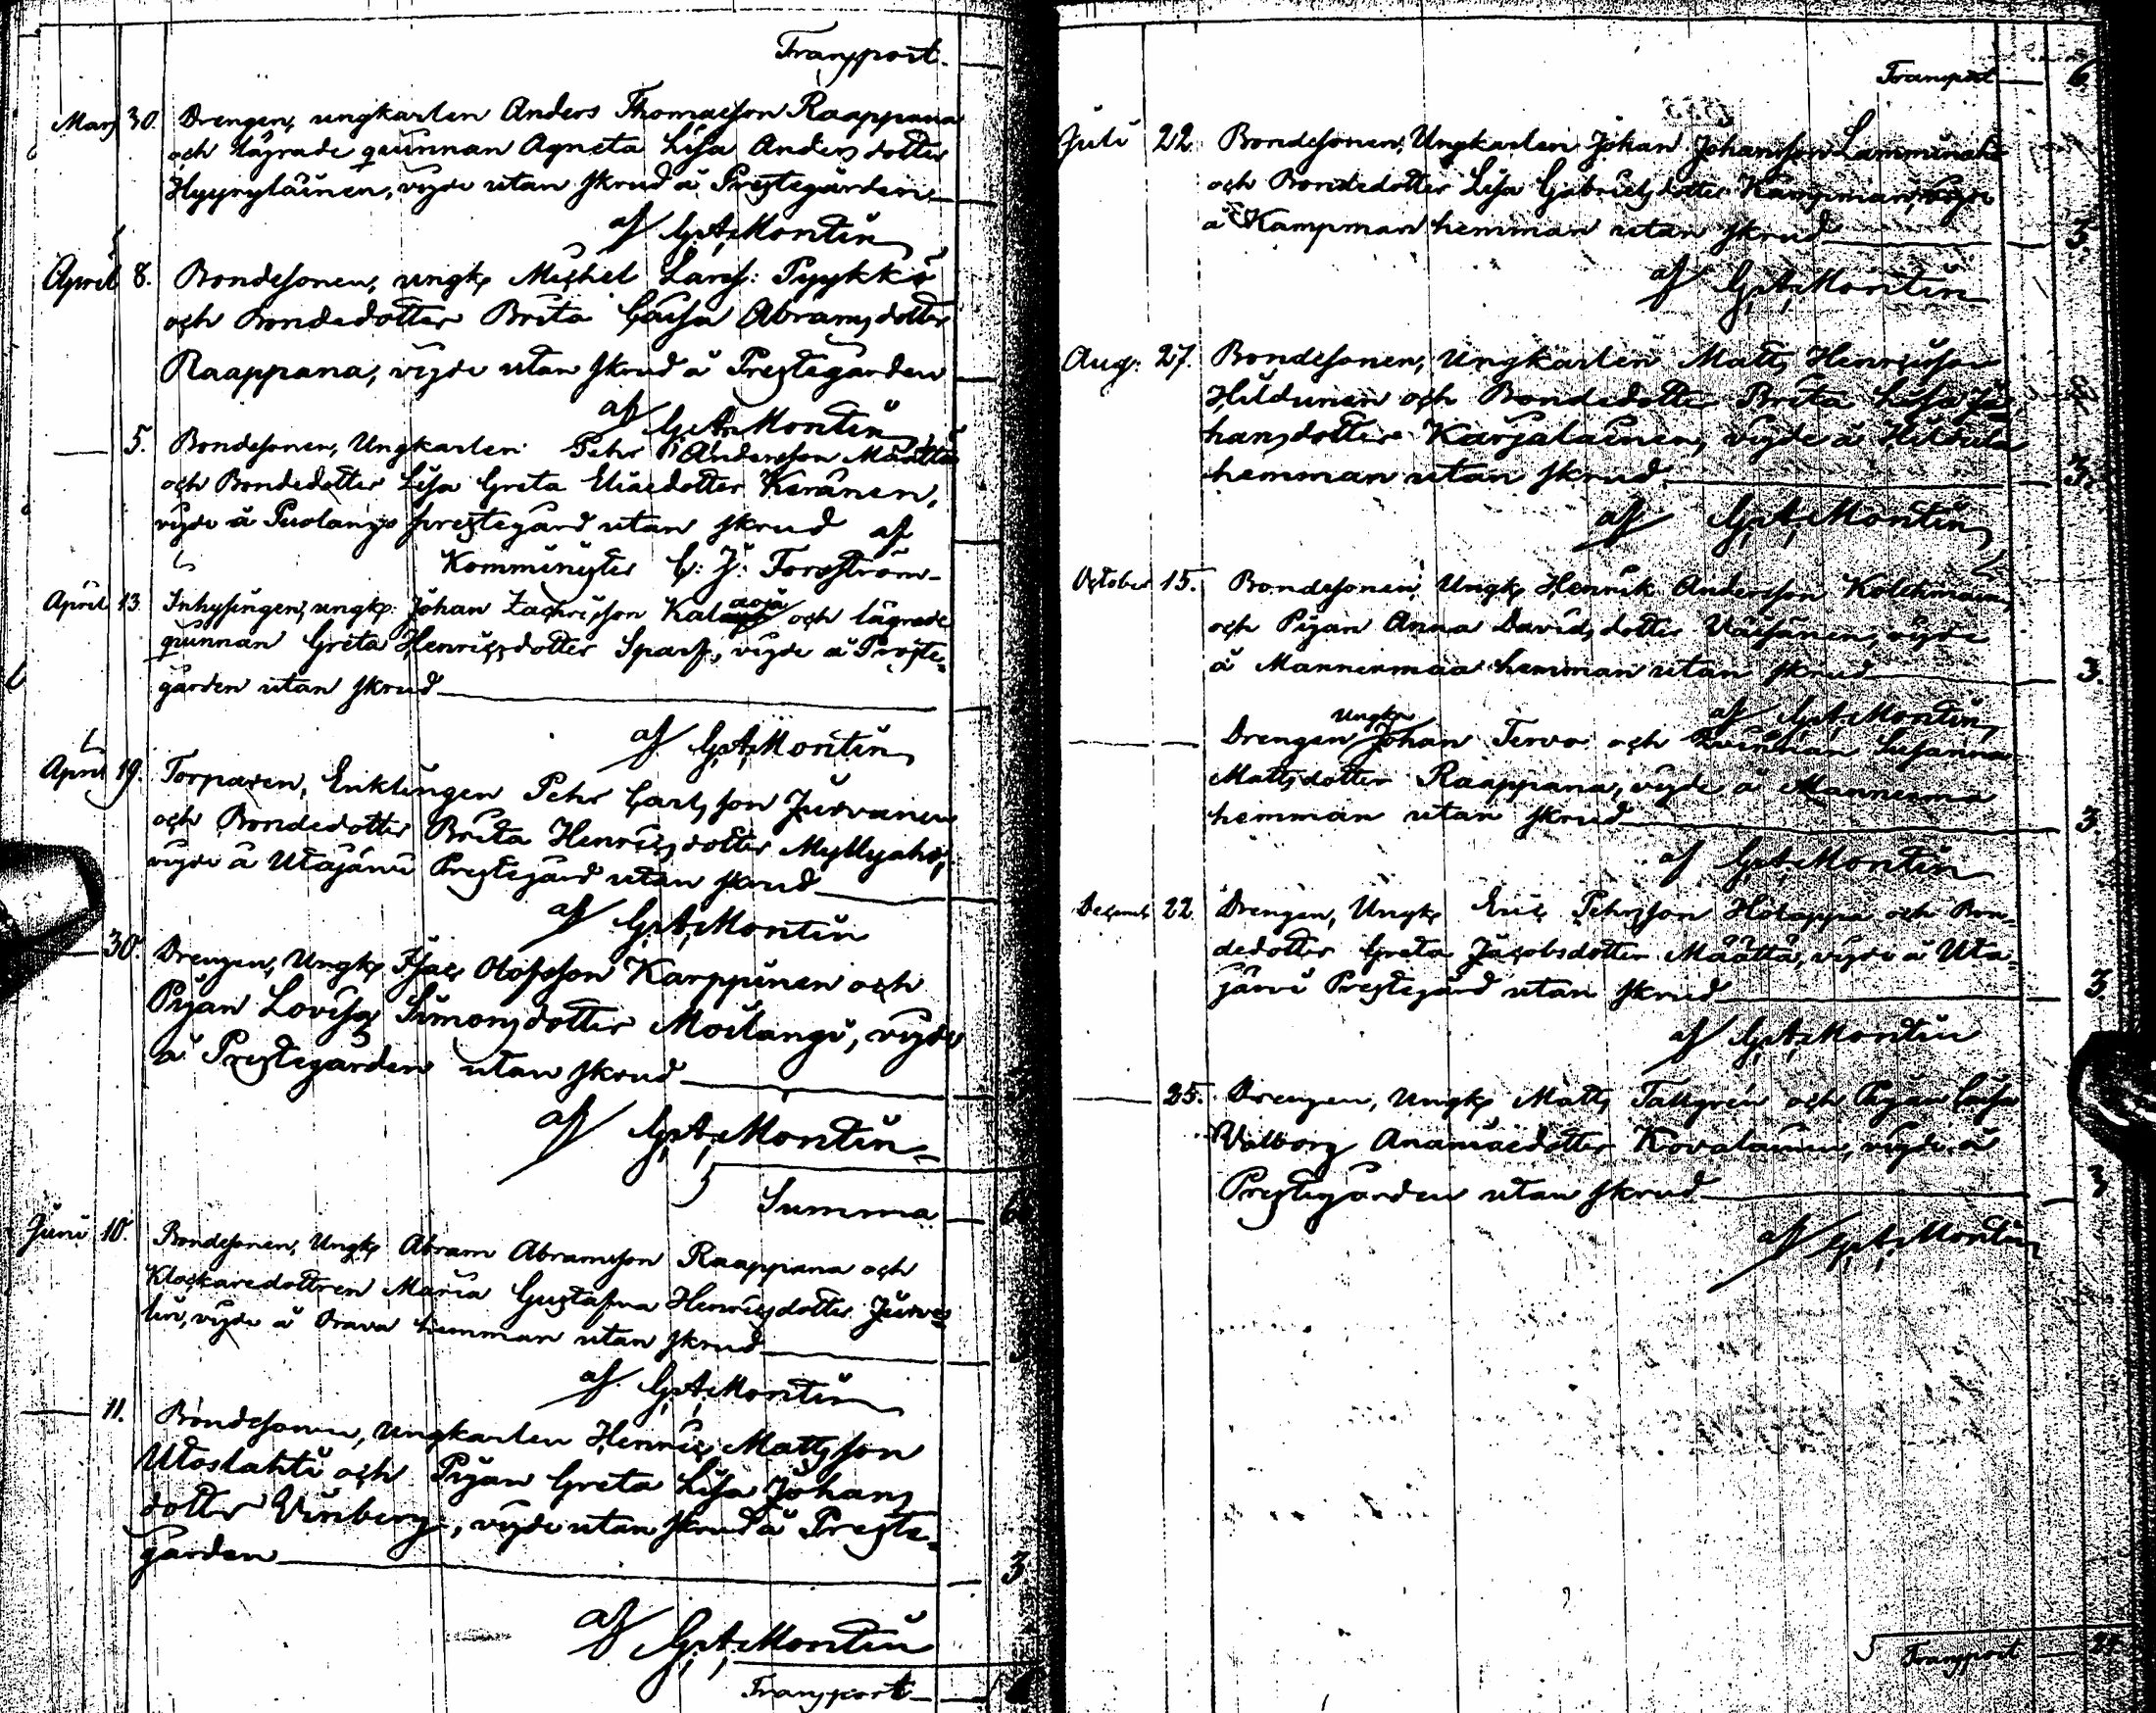 Transport
Mars 30. Drengen, ungkarlen Anders Thomasson Raappana
och lägrade qvinnan Agneta Lisa Anders dotter
Hyyryläinen, vigde utan skrud å Prestegården
af G. A. Montin
April 8. Bondesonen, ungk. Michel Larss: Pyykkö
och Bondedotter Brita Caisa Abramsdotter
Raappana, vigde utan skrud å Prestegården
af G. A. Montin
— 5. Bondesonen, Ungkarlen Pehr Andersson Määttä
och Bondedotter Lisa Greta Eliaedotter Keränen,
vigde å Puolango prestegård utan skrud af
Kommunister C: J: Forsström
April 13. Inhysingen, ungk: Johan Zachrisson Kalaoja och lägrade
qvinnan Greta Henricsdotter Sparf, vigde å Preste-
gården utan skrud
af G. A. Montin
April 19. Torparen, Enklingen Pehr Carlsson Jurvanen
och Bondedotter Brita Henricsdotter Myllyaho,
vigde å Utajärvi Prestegård utan skrud
af G. A. Montin
— 30. Drengen, Ungk. Isac Olofsson Karppinen och
Pigan Lovisa Simonsdotter Moilangi, vigde
å Prestegården utan skrud
af G. A. Montin
Summa 6
Juni 10. Bondesonen, Ungk. Abram Abramsson Raappana och
Klockaredottren Maria Gustafva Henricsdotter Jurve-
lin, vigde å Orava hemman utan skrud
af G. A. Montin
— 11. Bondesonen, ungkarlen Henric Mattsson
Utoslahti och Pigan Greta Lisa Johans
dotter Vinberg, vigde utan skrud å Preste-
gården 3.
af G. A. Montin
Transport 6
Transport 6.
Juli 22. Bondesonen, Ungkarlen Johan Johansson Lamminaho
och Bondedotter Lisa Gabrielsdotter Kampman, vigde
å Kampman hemman utan skrud 3.
af G. A. Montin
Aug: 27. Bondesonen, Ungkarlen Matts Henricsson
Hildunen och Bondedotter Brita Lisa Jo-
hansdotter Karjalainen, vigde å Hildula
hemman utan skrud 3.
af G. A. Montin
October 15. Bondesonen Ungk. Henrik Andersson Kolehmainen
och Pigan Anna Davidsdotter Väisänen, vigde
å Mannermaa hemman utan skrud 3.
af G. A. Montin
— — Drengen Ungk. Johan Tervo och Qvinnan Susanna
Mattsdotter Raappana, vigde å Mannerma
hemman utan skrud 3.
af G. A. Montin
Decemb 22. Drengen, Ungk. Eric Pehrsson Holappa och Bon-
dedotter Greta Jacobsdotter Määttä, vigde å Uta-
järvi Prestegård utan skrud 3.
af G. A. Montin
— 25. Drengen, Ungk. Matts Tallgrén och Pigan Caisa
Valborg Ananiaedotter Kovalainen, vigde å
Prestegården utan skrud 3
af G. A. Montin
Transport 24